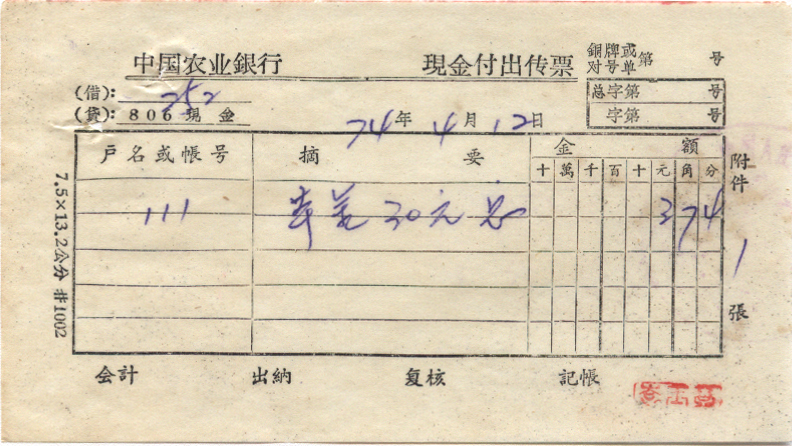 中国农业銀行 現金付出传票 銅牌或对号单 第 号
(借): 252 总字第 号
(貸): 806 現金 字第 号
74年 4月 12日
户名或帳号 摘要 金額
十 萬 千 百 十 元 角 分
111 30元 3 7 4
附件 1 張
7.5×13.2公分 井1002
会計 出納 复核 記帳